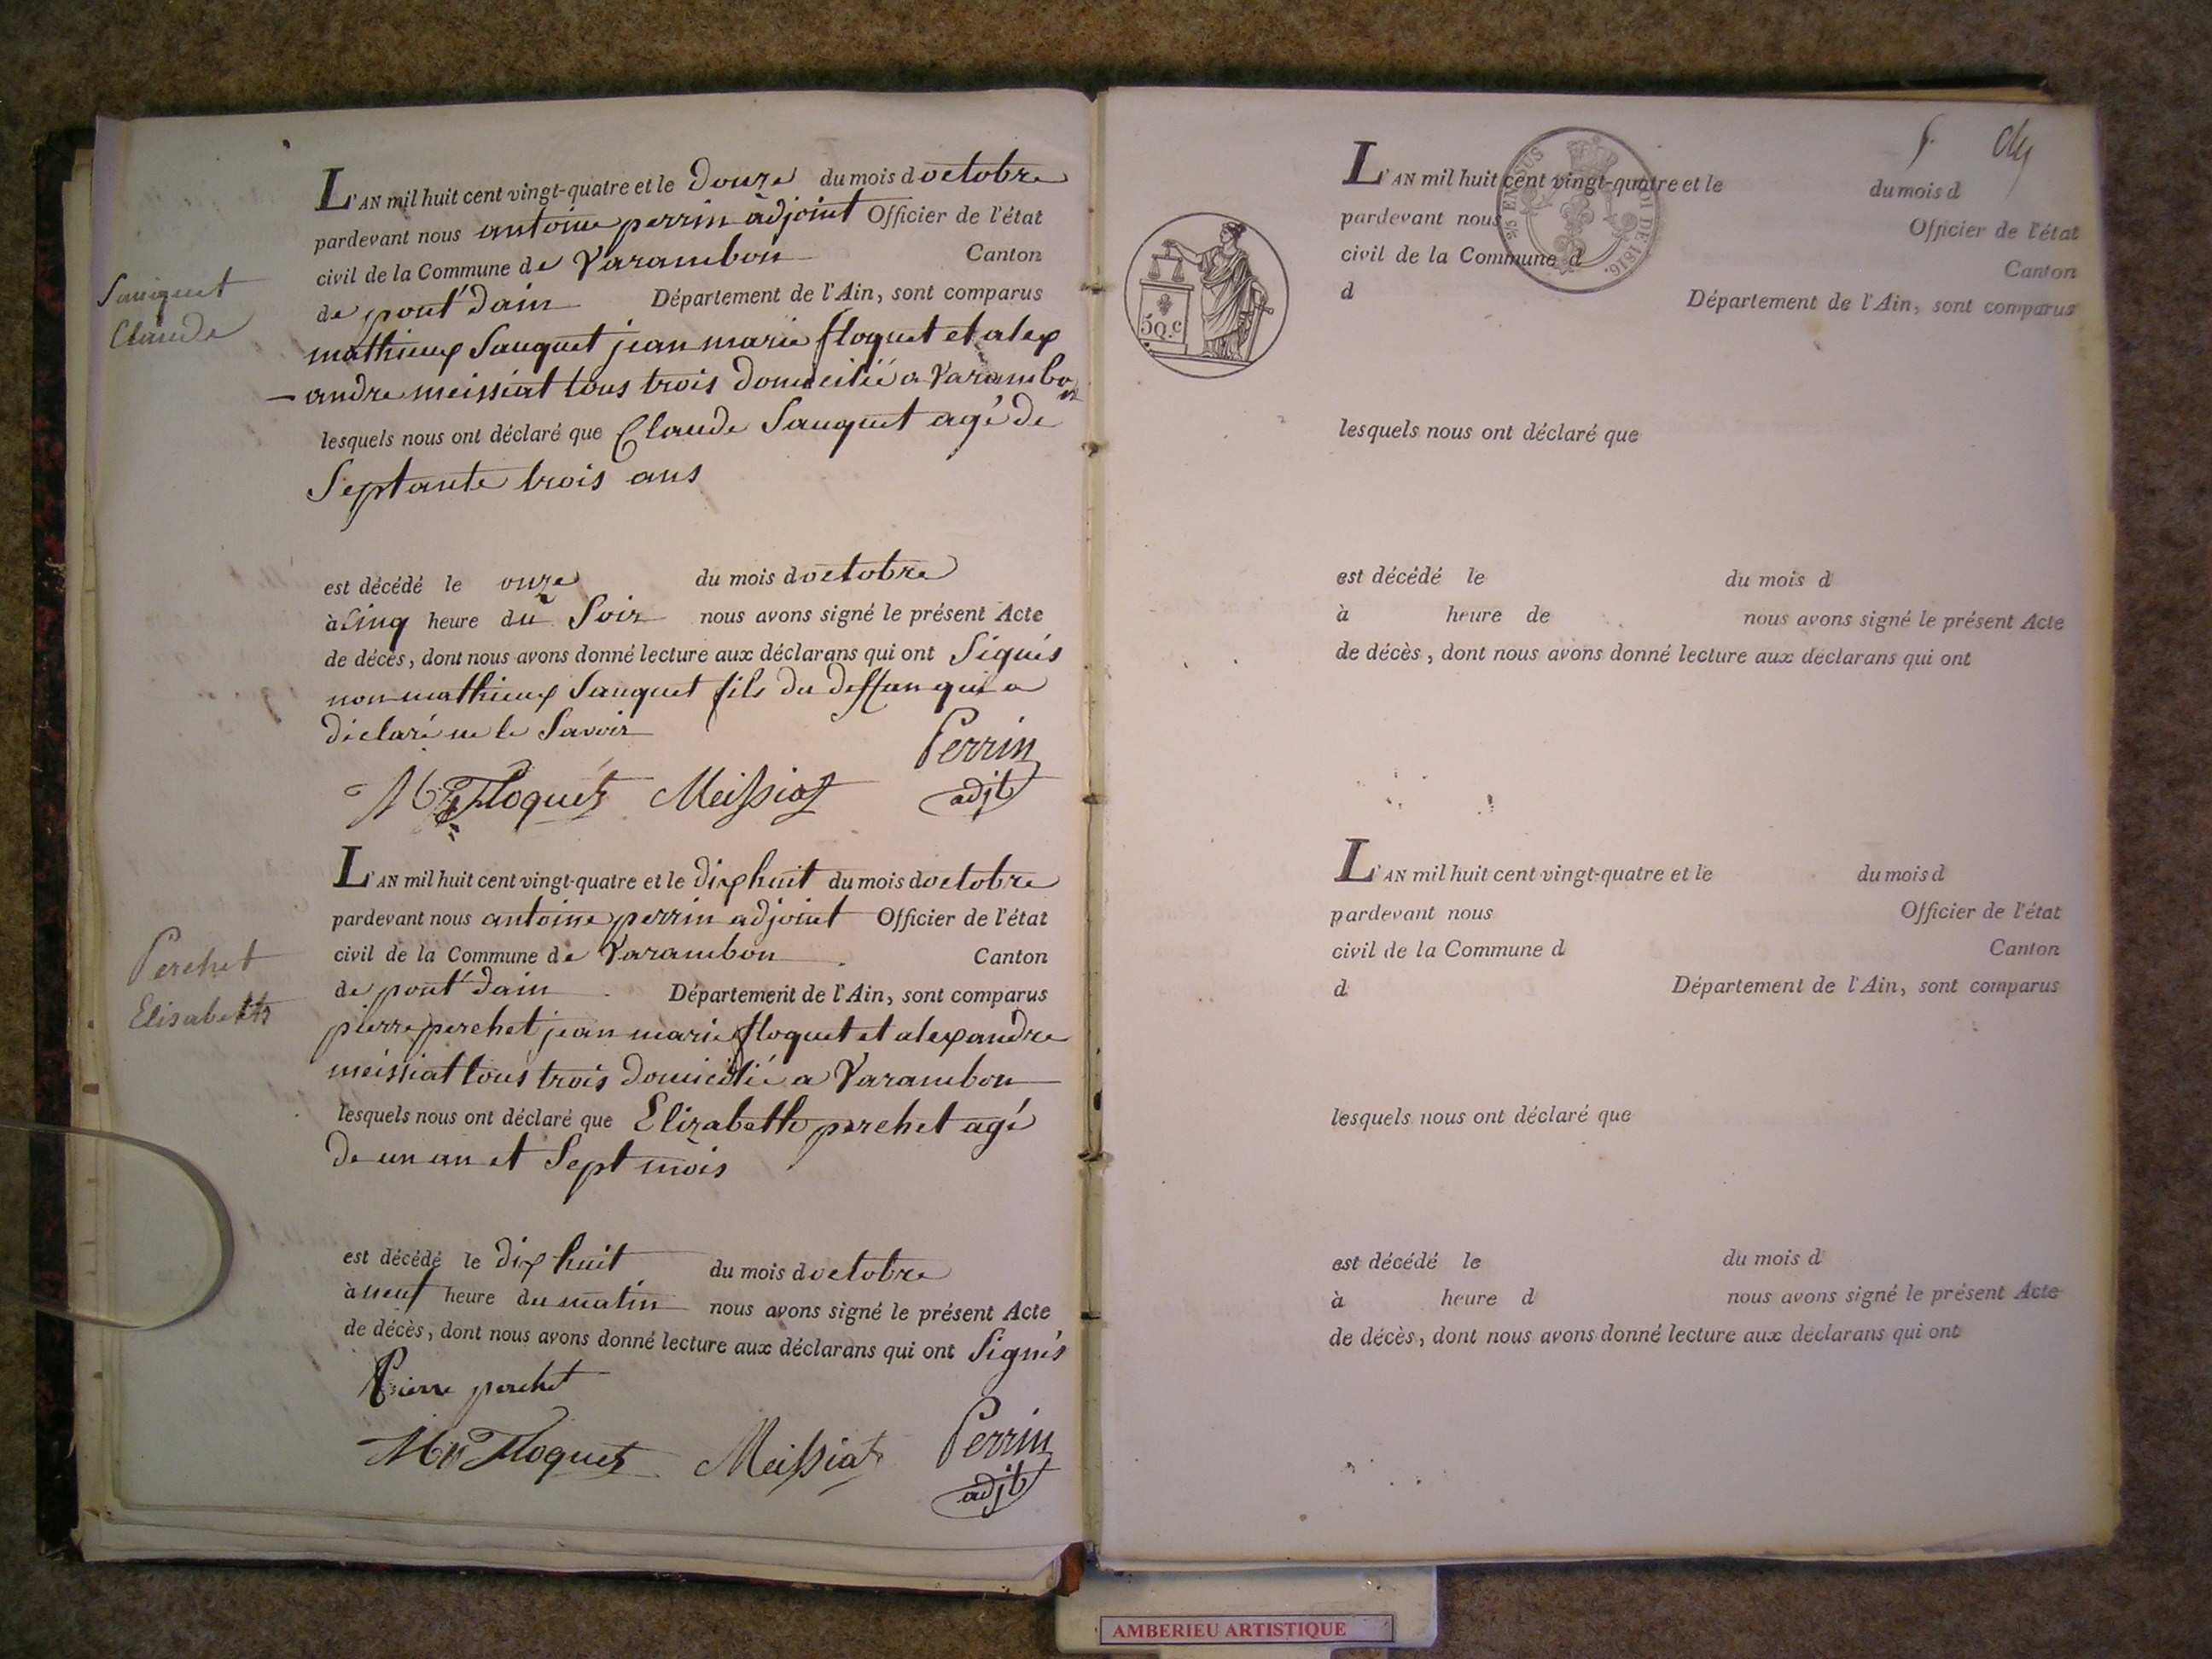 Sauquet
Claude
L'AN mil huit cent vingt-quatre et le douze du mois doctobre
pardevant nous antoine perrin adjoint Officier de l'état
civil de la Commune de Varambon Canton
de pont d'ain Département de l'Ain, sont comparus
mathieux Sauquet jean marie floquet et alex
andre meissiat tous trois domicilié a Varambon
lesquels nous ont déclaré que Claude Sauquet agé de
Septante trois ans
est décédé le onze du mois doctobre
à Cinq heure du Soir nous avons signé le présent Acte
de décès, dont nous avons donné lecture aux déclarans qui ont Signés
non mathieux Sauquet fils du deffun qui a
déclaré ne le Savoir
Perrin
Floquet Meissiat adjt
Perchet
Elisabeth
L'AN mil huit cent vingt-quatre et le dixhuit du mois doctobre
pardevant nous antoine perrin adjoint Officier de l'état
civil de la Commune de Varambon Canton
de pont d'ain Département de l'Ain, sont comparus
pierre perchet jean marie floquet et alexandre
meissiat tous trois domicilié a Varambon
lesquels nous ont déclaré que Elizabeth perchet agé
de un an et Sept mois
est décédé le dix huit du mois doctobre
à neuf heure du matin nous avons signé le présent Acte
de décès, dont nous avons donné lecture aux déclarans qui ont Signés
Pierre perchet
Floquet Meissiat Perrin
adjt
L'AN mil huit cent vingt-quatre et le du mois d
pardevant nous Officier de l'état
civil de la Commune d Canton
d Département de l'Ain, sont comparus
50.c
lesquels nous ont déclaré que
est décédé le du mois d
à heure de nous avons signé le présent Acte
de décès, dont nous avons donné lecture aux déclarans qui ont
L'AN mil huit cent vingt-quatre et le du mois d
pardevant nous Officier de l'état
civil de la Commune d Canton
d Département de l'Ain, sont comparus
lesquels nous ont déclaré que
est décédé le du mois d
à heure d nous avons signé le présent Acte
de décès, dont nous avons donné lecture aux déclarans qui ont
AMBERIEU ARTISTIQUE